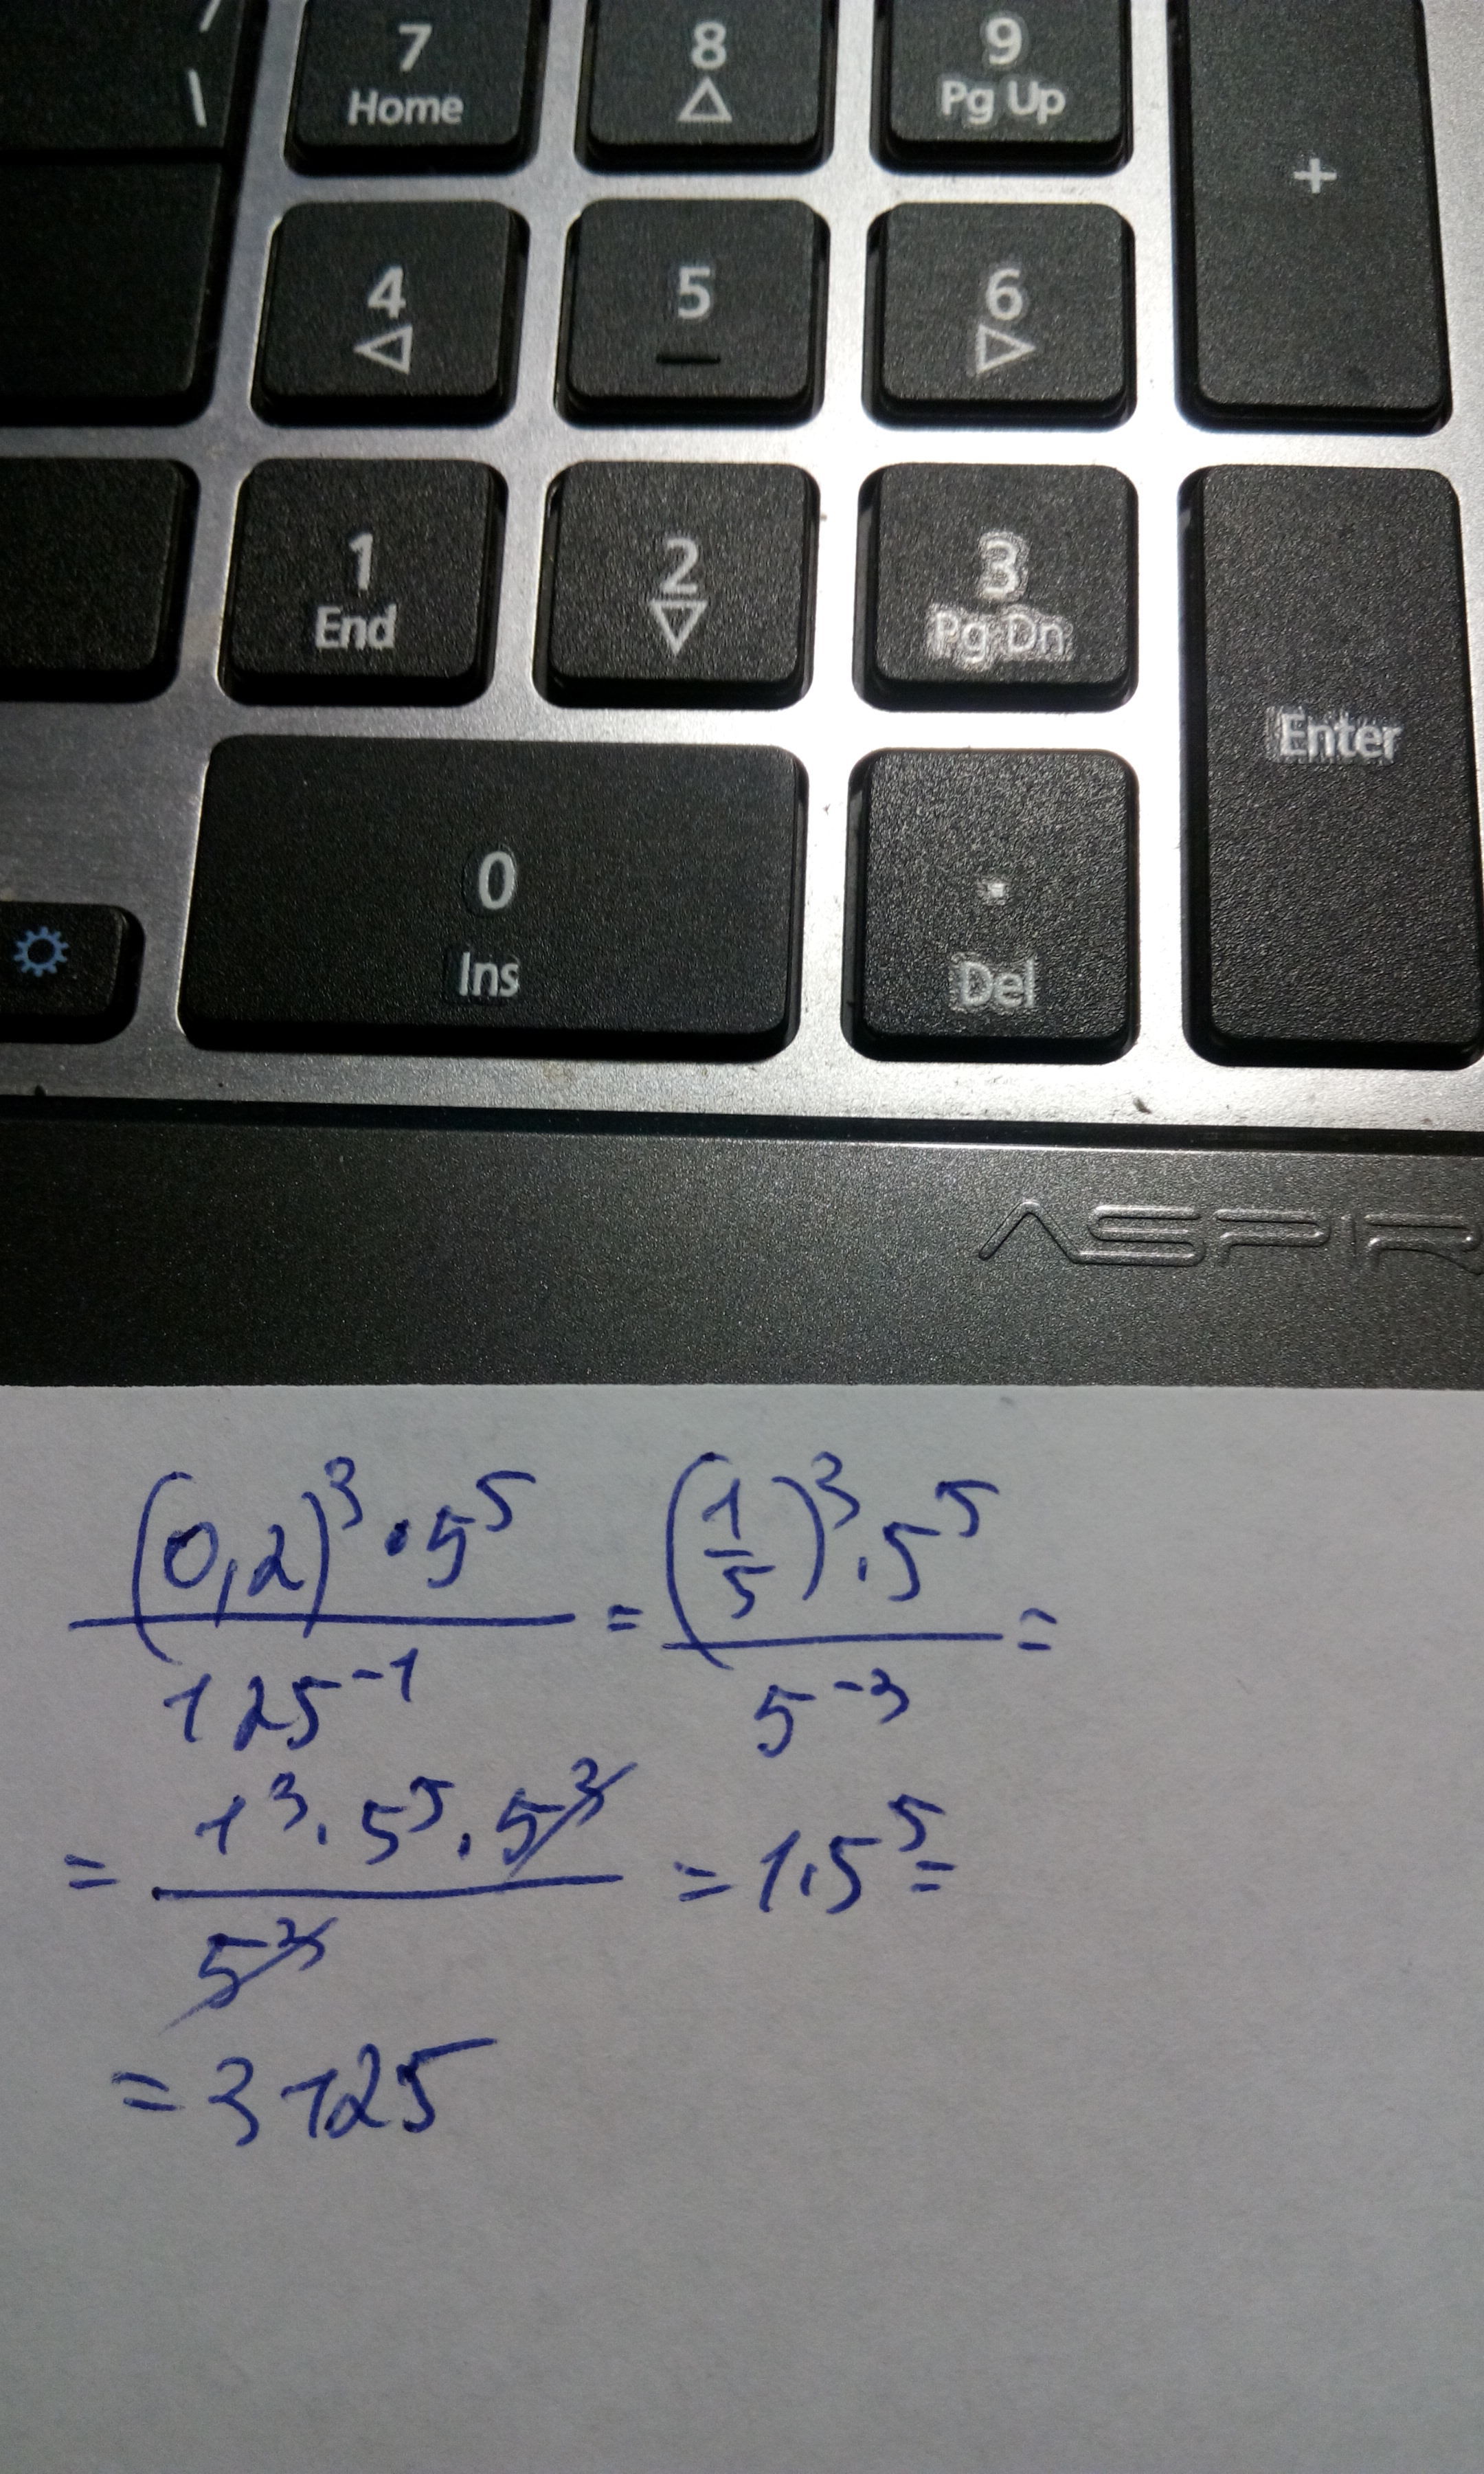 / 7 8 9
\ Home △ Pg Up +
4 5 6
◁ _ ▷
1 2 3
End ▽ Pg Dn Enter
0 .
Ins Del
ASPIR
(0,2)³ · 5⁵ / 125⁻¹ = (1/5)³ · 5⁵ / 5⁻³ =
= 1³ · 5⁵ · 5³ / 5³ = 1 · 5⁵ =
= 3125